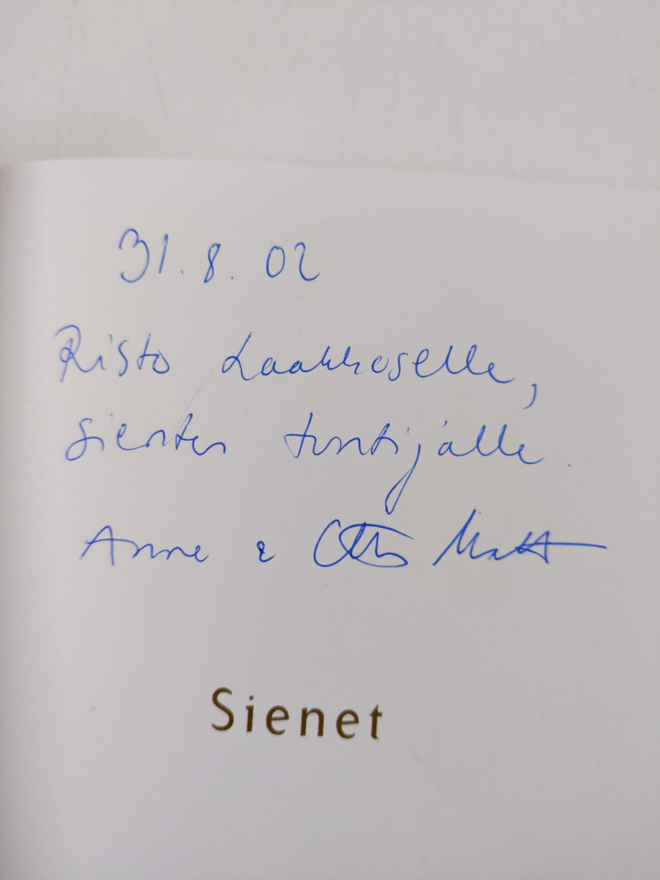 31.8.02
Risto Laakkoselle,
sienten tuntijalle
Anne & Otto
Sienet